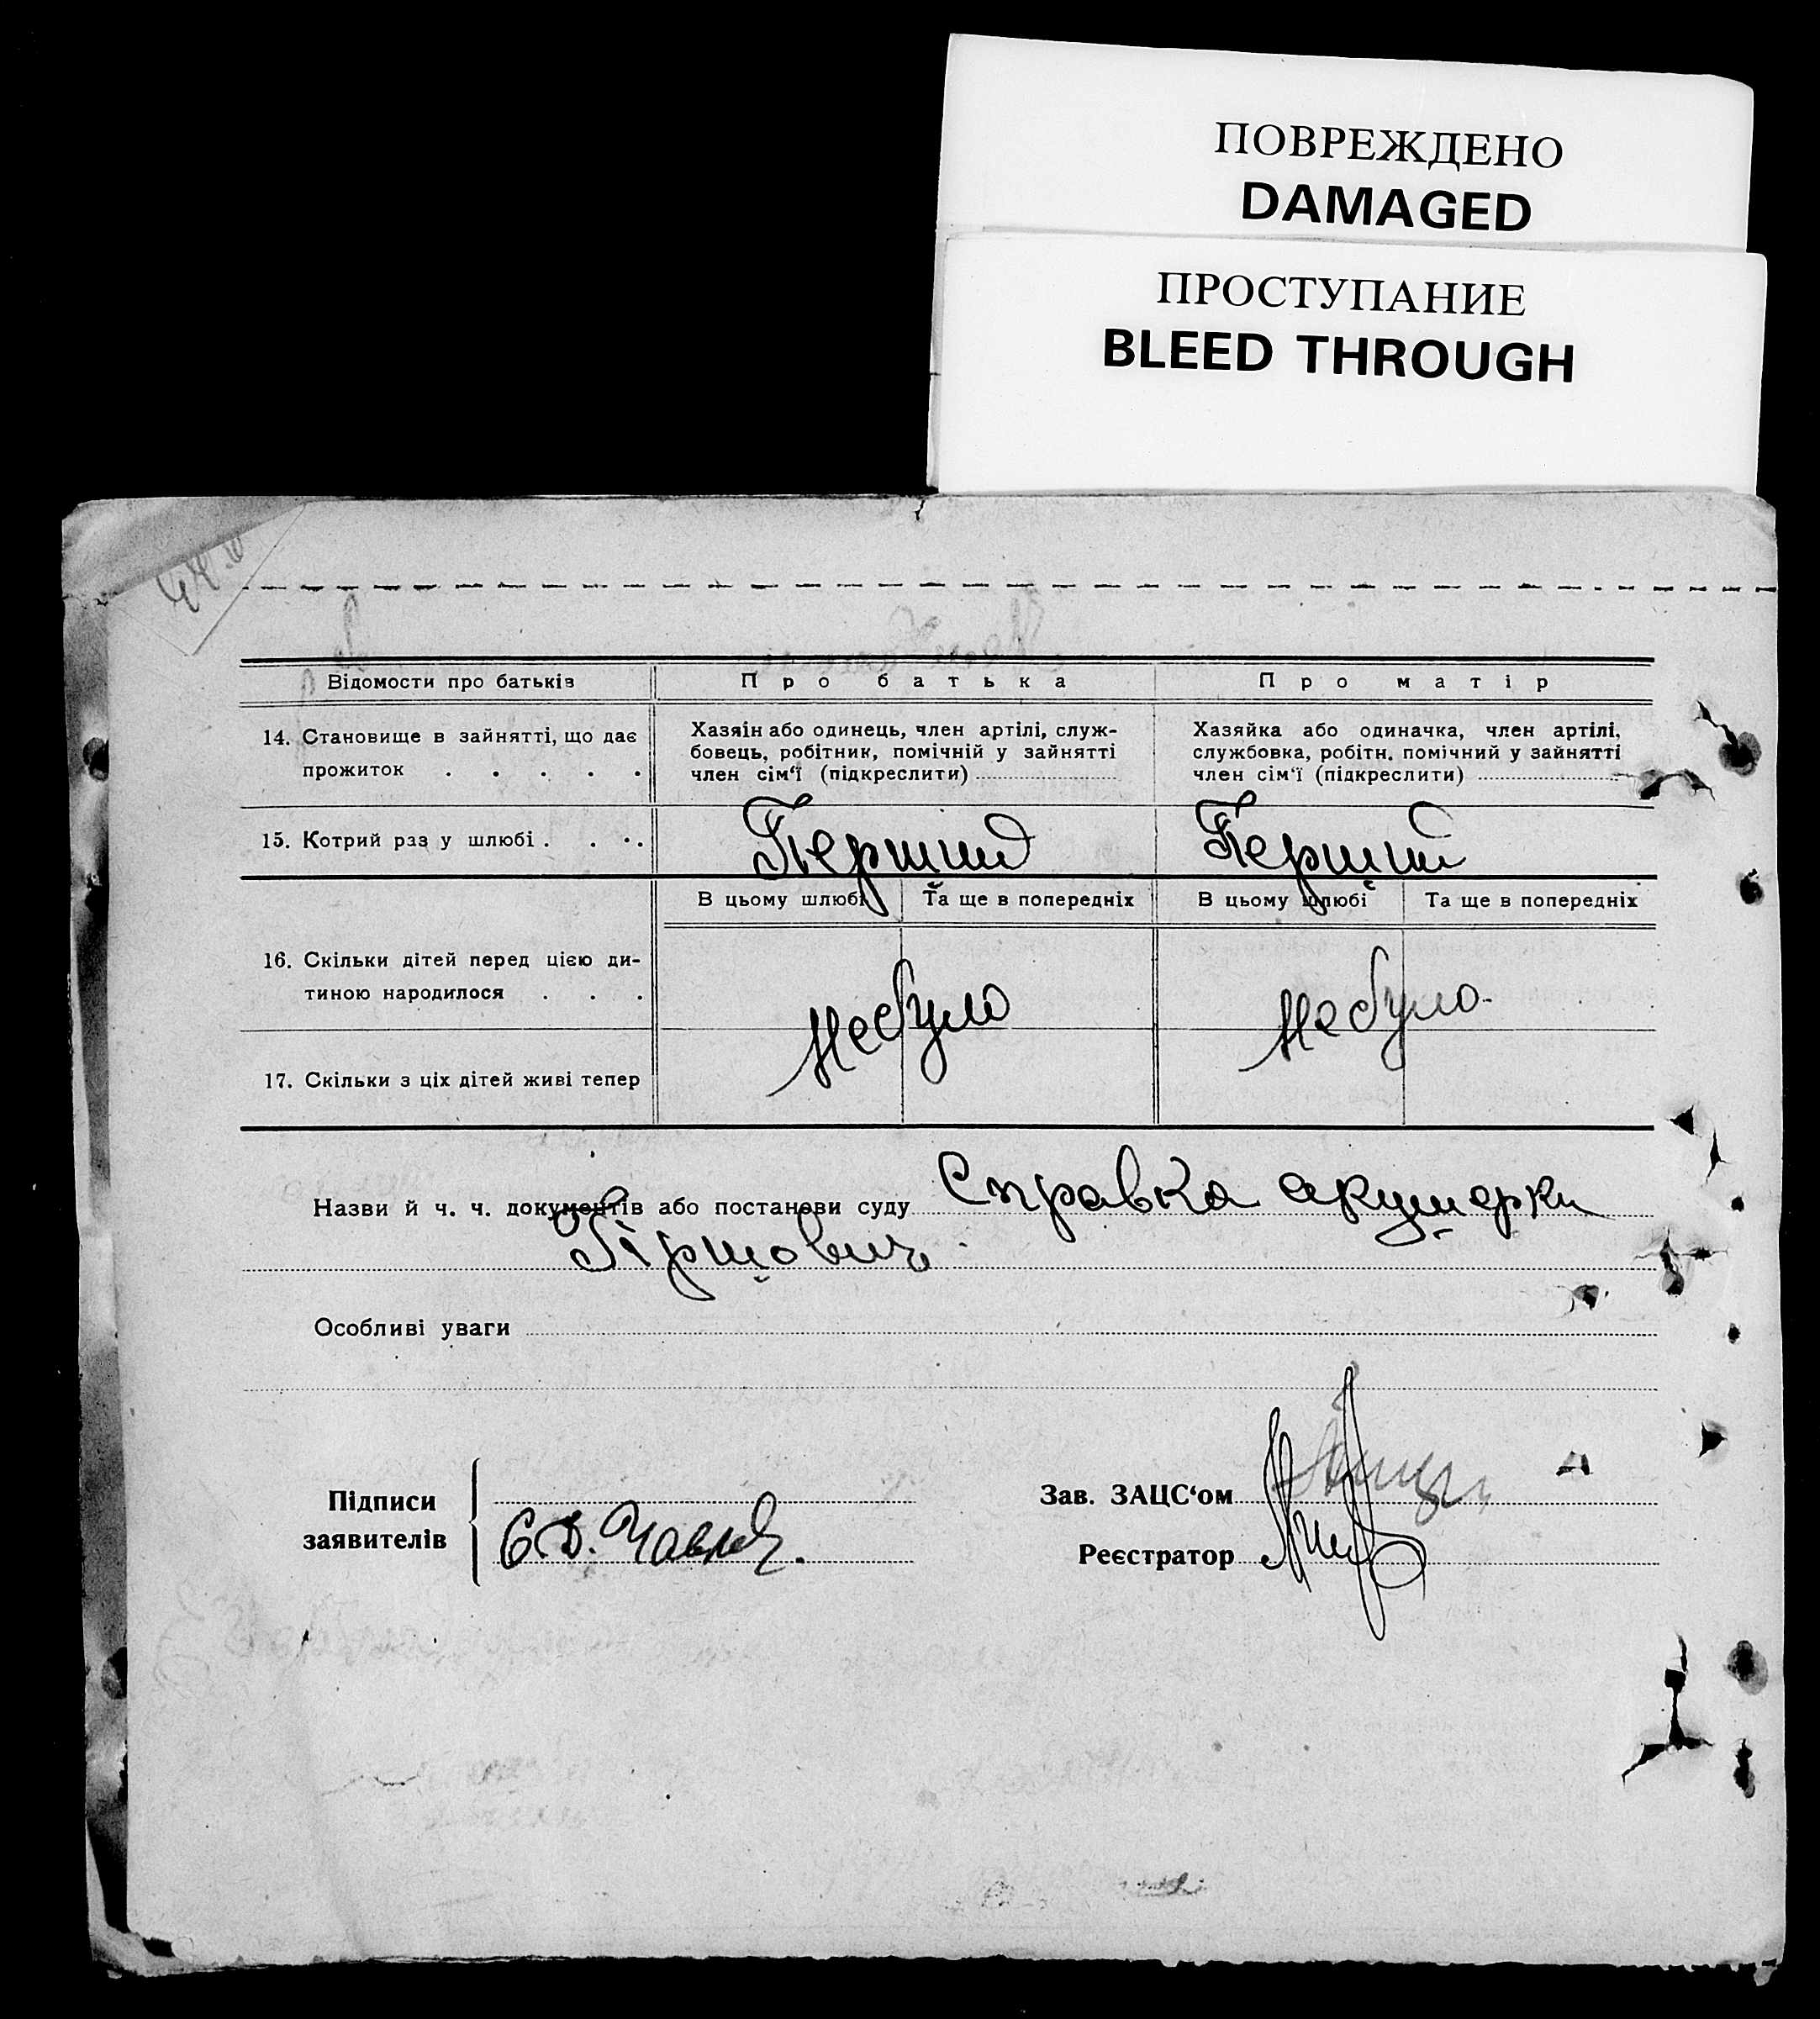 ПОВРЕЖДЕНО
DAMAGED
ПРОСТУПАНИЕ
BLEED THROUGH
Відомости про батьків
Про батька
Про матір
14. Становище в зайнятті, що дає
прожиток . . . . .
Хазяін або одинець, член артілі, служ-
бовець, робітник, помічній у зайнятті
член сім‘ї (підкреслити)
Хазяйка або одиначка, член артілі,
службовка, робітн. помічний у зайнятті
член сім‘ї (підкреслити)
15. Котрий раз у шлюбі . . . .
Перший
Перший
В цьому шлюбі
Та ще в попередніх
В цьому шлюбі
Та ще в попередніх
16. Скільки дітей перед цією ди-
тиною народилося . . .
Небуло
Небуло
17. Скільки з ціх дітей живі тепер
Назви й ч. ч. документів або постанови суду Справка акушерки
Гіршович
Особливі уваги
Підписи
заявителів
Зав. ЗАЦС‘ом
Реєстратор